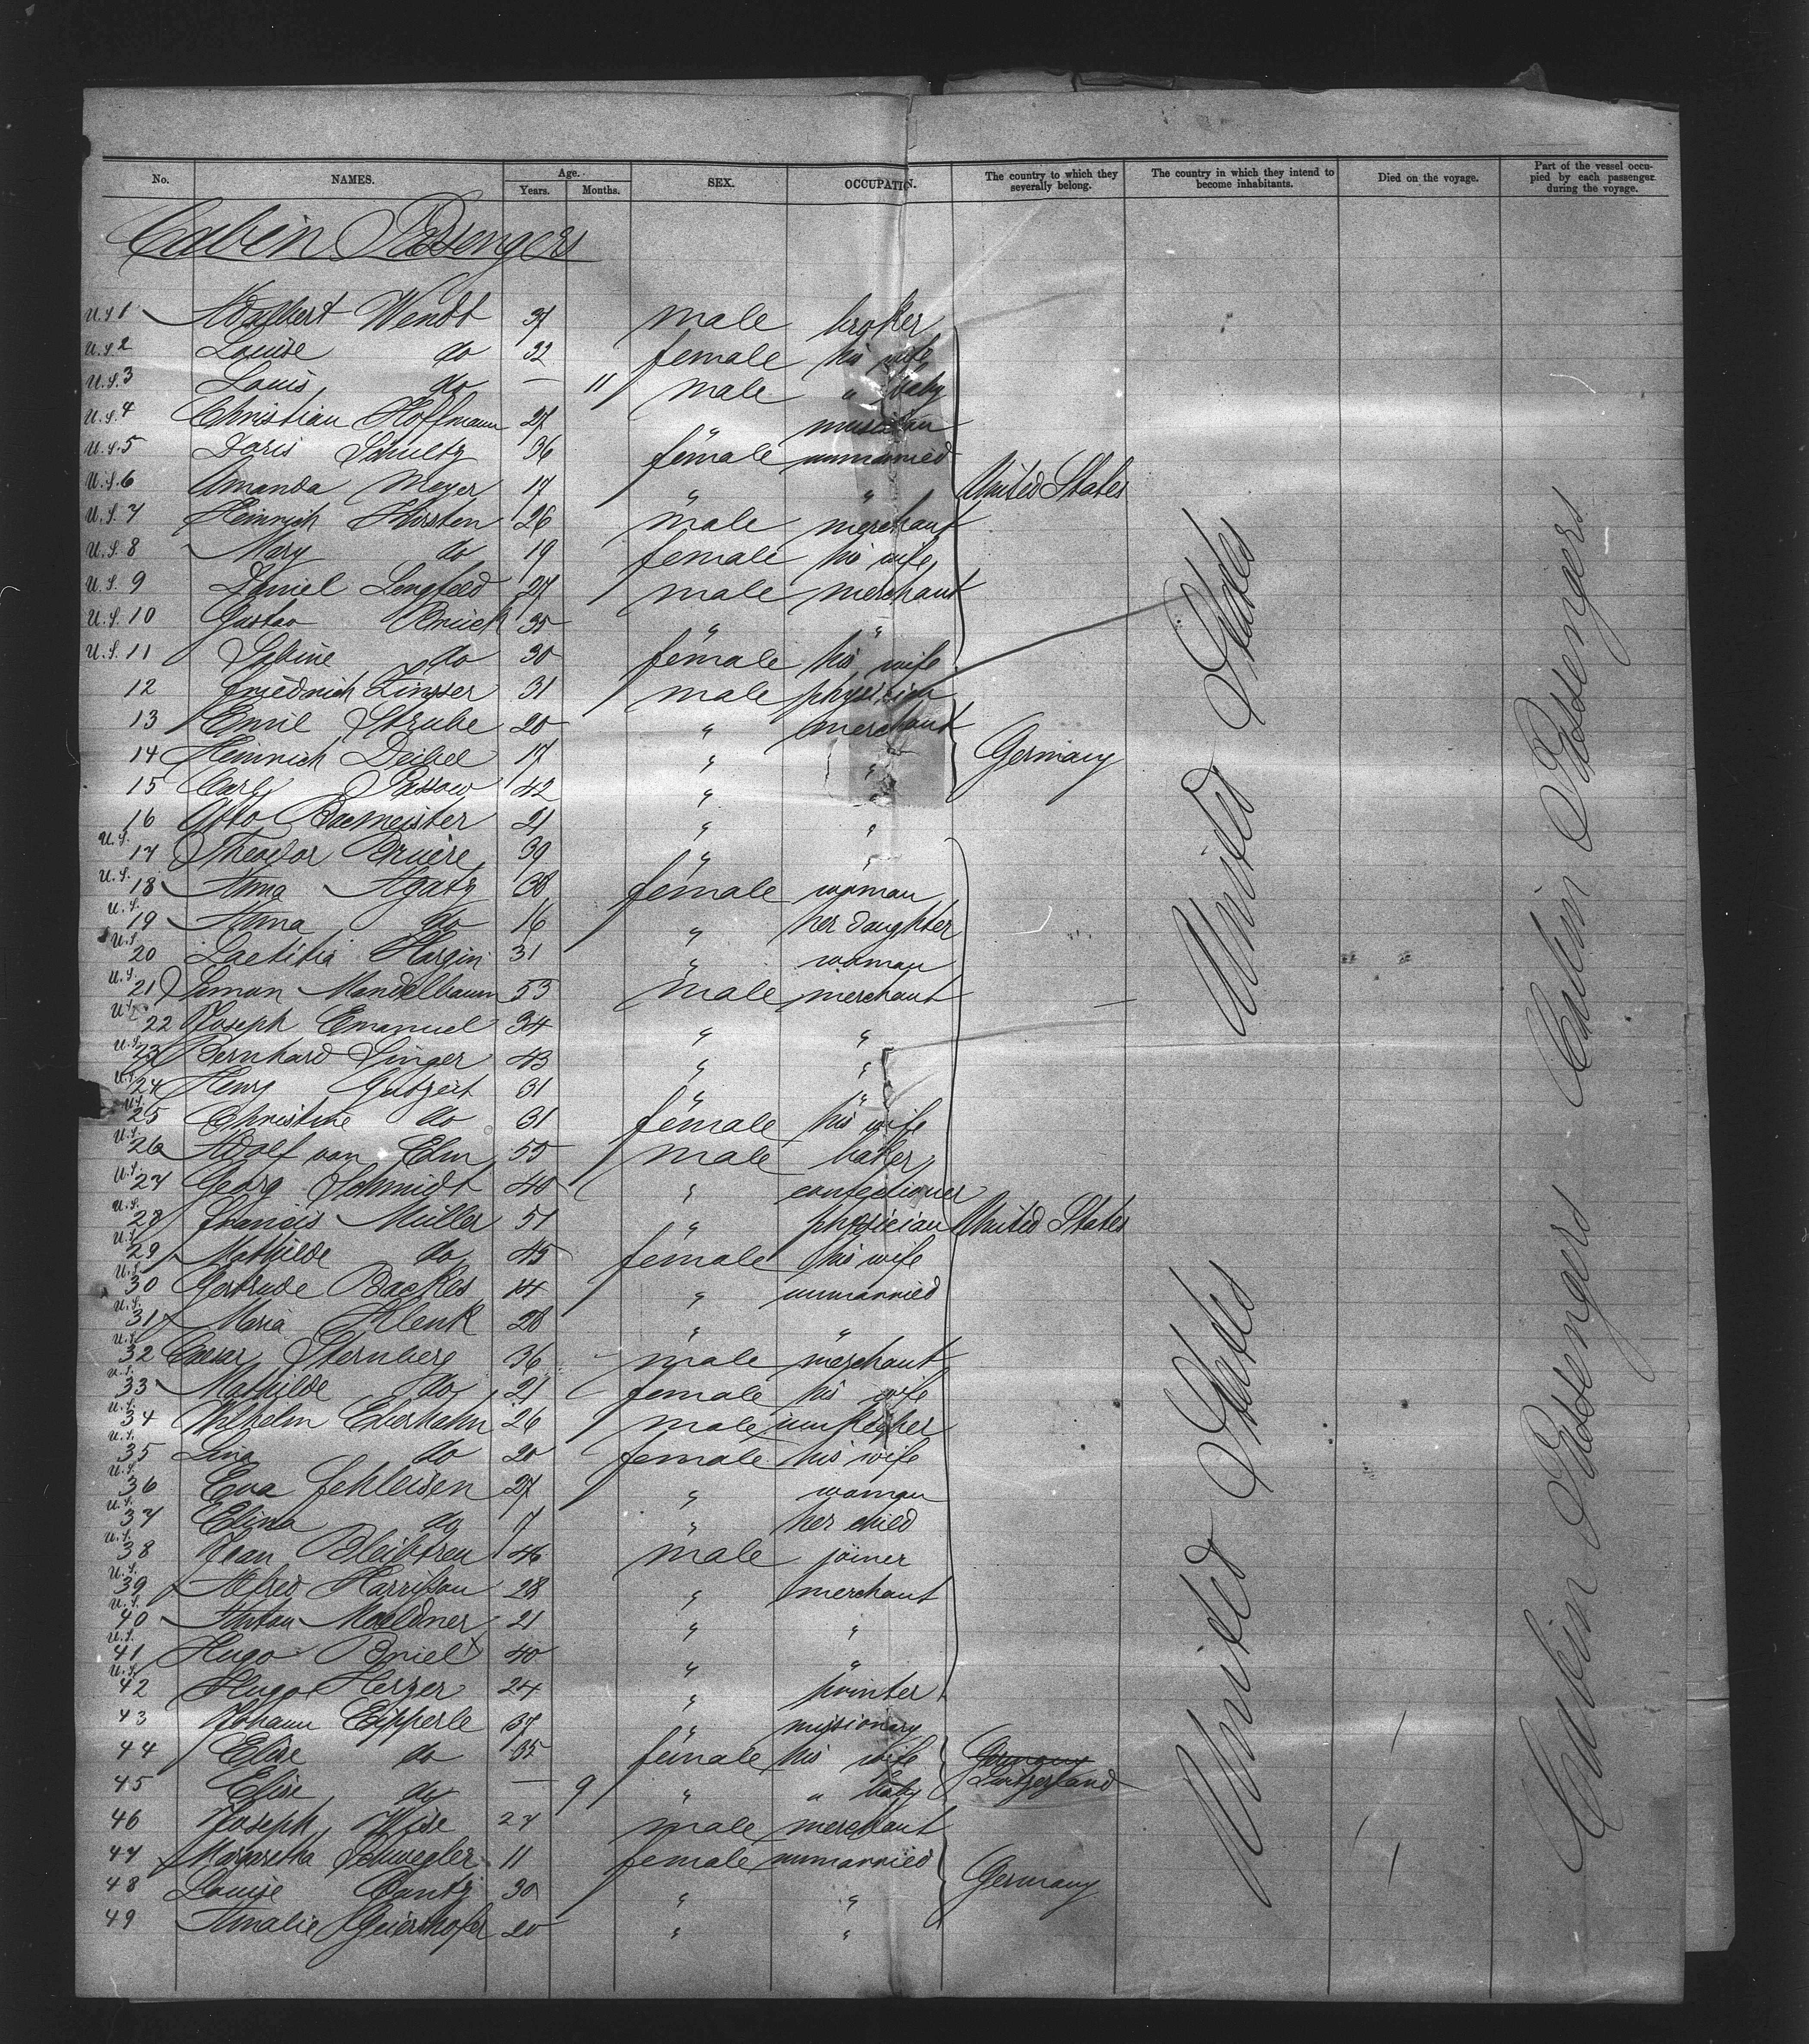 No. NAMES. Age. Years. Months. SEX. OCCUPATION. The country to which they severally belong. The country in which they intend to become inhabitants. Died on the voyage. Part of the vessel occupied by each passenger during the voyage.
Cabin Passengers
U.S. 1 Adalbert Wendt male broker
U.S. 2 Louise do 32 female his wife
U.S. 3 Louis do — 11 male " baby
U.S. 4 Christian Hoffmann 27 " musician
U.S. 5 Doris Schultz 36 female unmarried
U.S. 6 Amanda Meyer 17 " " United States
U.S. 7 Heinrich 26 male merchant
U.S. 8 Mary do 19 female his wife
U.S. 9 Daniel Lengfeld 27 male merchant
U.S. 10 Gustav Brück 35 " "
U.S. 11 Sabine do 30 female his wife
12 Friedrich Zinsser 31 male physician
13 Emil Strube 20 " merchant
14 Heinrich Deibel 17 " " Germany
15 Carl Passow 42 "
16 Otto Bacmeister 21 " "
U.S. 17 Theodor Bruère 39 " "
U.S. 18 Anna Agatz 38 female woman
U.S. 19 Anna do 16 " her daughter
U.S. 20 Laetitia Hargin 31 " woman
U.S. 21 Simon Mandelbaum 53 male merchant
U.S. 22 Joseph Emanuel 34 " "
U.S. 23 Bernhard Singer 43 " "
U.S. 24 Henry Gutzeit 31 " "
U.S. 25 Christine do 31 female his wife
U.S. 26 Adolf von Elm 55 male baker
U.S. 27 Georg Schmidt 40 " confectioner
U.S. 28 Francis Müller 51 " physician United States
U.S. 29 Mathilde do 45 female his wife
U.S. 30 Gertrude Backes 14 " unmarried
U.S. 31 Maria Klenk 28 " "
U.S. 32 Caesar Sternberg 36 male merchant
U.S. 33 Mathilde do 21 female his wife
U.S. 34 Wilhelm Eberhahn 26 male innkeeper
U.S. 35 Lina do 20 female his wife
U.S. 36 Eva Fehleisen 27 " woman
U.S. 37 Elina do 7 " her child
U.S. 38 Jean Bleibtreu 46 male joiner
U.S. 39 Alfred Harrison 28 " merchant
U.S. 40 Anton Moeldner 21 " "
U.S. 41 Hugo Briel 40 " "
U.S. 42 Hugo Herzer 24 " printer
43 Johann Epperle 37 " missionary
44 Elise do 35 female his wife Germany
Switzerland
45 Elise do — 9 " " baby
46 Joseph Wise 27 male merchant
47 Margaretha Schwegler 11 female unmarried
48 Louise 30 " " Germany
49 Amalie Geiershofer 20 " "
United States
United States
Cabin Passengers
Cabin Passengers